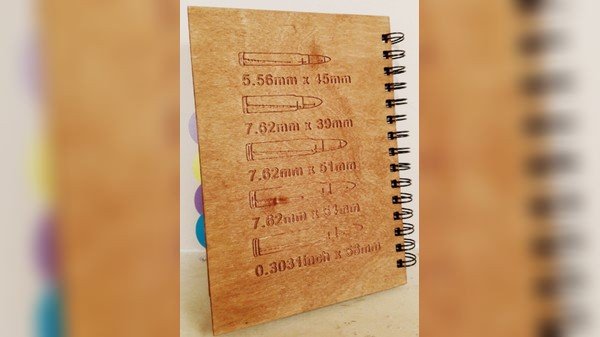 5.56mm x 45mm
7.62mm x 39mm
7.62mm x 51mm
7.62mm x
0.3031inch x